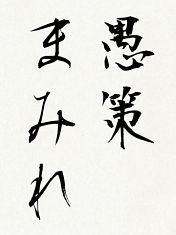 愚策
まみれ